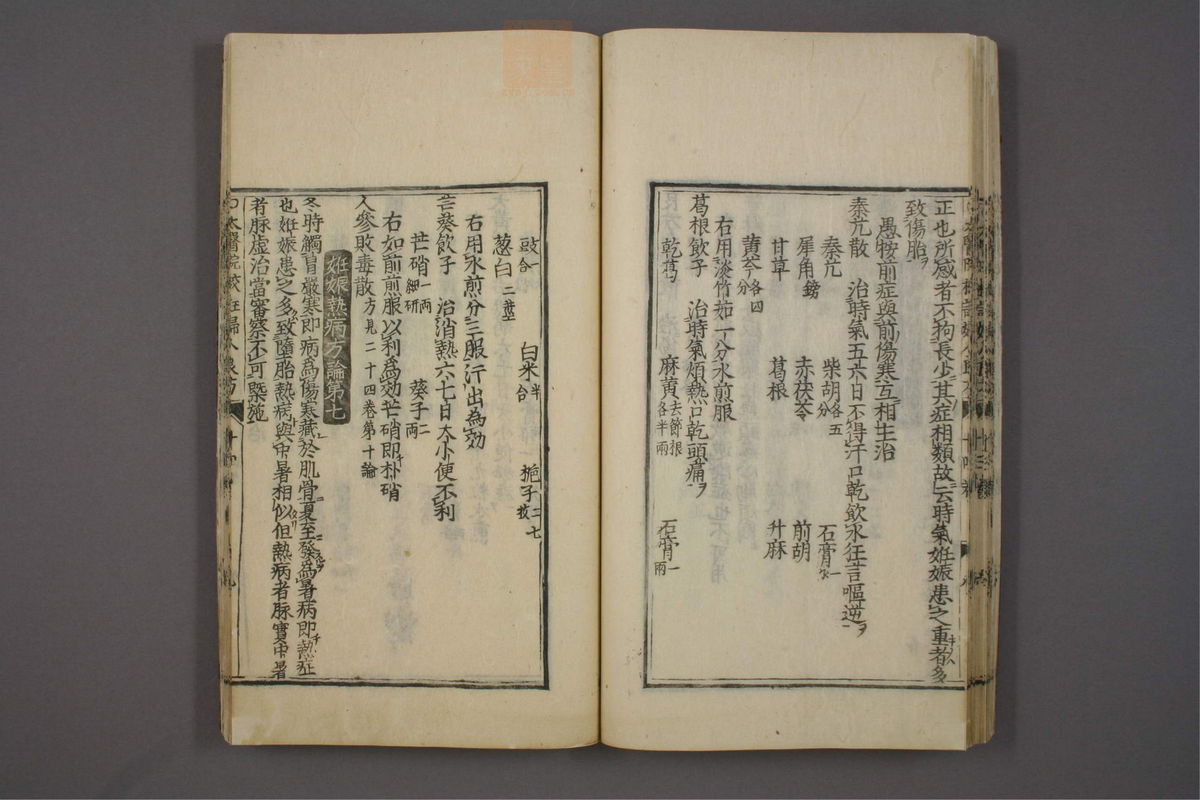 正也所感者不拘長少其症相類故云時氣姙娠患之重者多
致傷胎
愚按前症與前傷寒互相主治
秦艽散　治時氣五六日不得汗口乾飲水狂言嘔逆
秦艽　柴胡各五分　石膏一分
犀角鎊　赤茯苓　前胡
甘草　葛根　升麻
黄芩各四分
右用淡竹茹一分水煎服
葛根飲子　治時氣煩熱口乾頭痛
乾葛　麻黄去節根各半兩　石膏一兩
豉一合　白米半合　梔子二七枚
葱白二莖
右用水煎分三服汗出為効
苦葵飲子　治消熱六七日大小便不利
芒硝一兩細研　葵子二兩
右如前煎服以利為効芒硝即朴硝
人參敗毒散方見二十四卷第十論
姙娠熱病方論第七
冬時觸冒嚴寒即病為傷寒藏於肌骨夏至發為暑病即熱症
也姙娠患之多致墮胎熱病與中暑相似但熱病者脉實中暑
者脉虚治當審察不可槩施
太醫院校註婦人良方